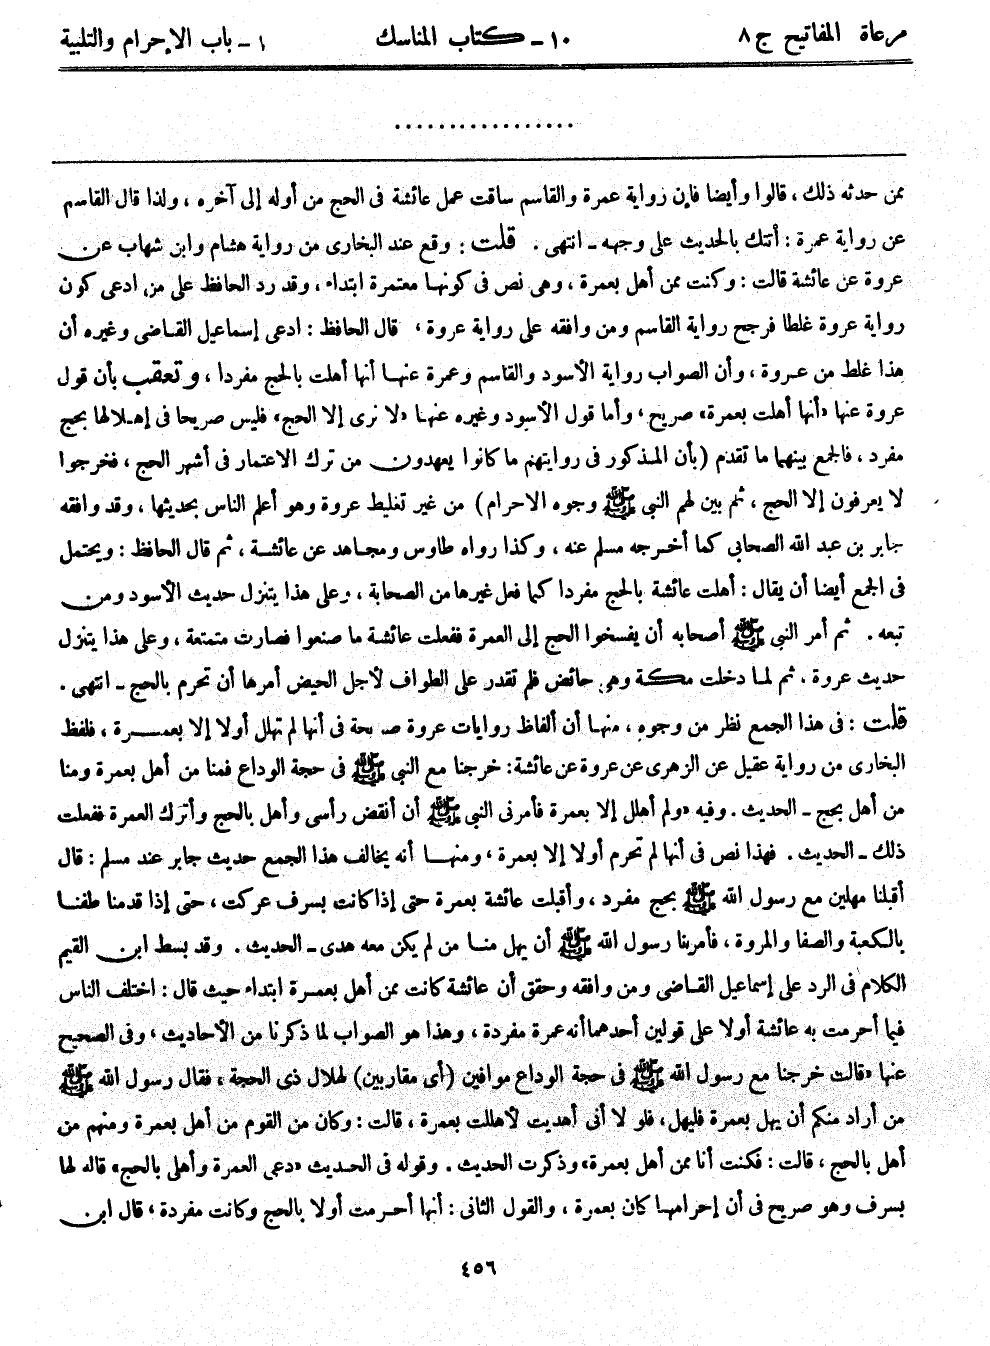 مرعاة المفاتيح ج ٨ ١٠ ـ كتاب المناسك ١ ـ باب الإحرام والتلبية
.................
ممن حدثه ذلك ، قالوا وأيضا فإن رواية عمرة والقاسم ساقت عمل عائشة فى الحج من أوله إلى آخره ، ولذا قال القاسم
عن رواية عمرة : أتتك بالحديث على وجهه ـ انتهى . قلت : وقع عند البخارى من رواية هشام وابن شهاب عن
عروة عن عائشة قالت : وكنت ممن أهل بعمرة ، وهى نص فى كونها معتمرة ابتداء ، وقد رد الحافظ على من ادعى كون
رواية عروة غلطا فرجح رواية القاسم ومن وافقه على رواية عروة ، قال الحافظ : ادعى إسماعيل القاضى وغيره أن
هذا غلط من عروة ، وأن الصواب رواية الأسود والقاسم وعمرة عنها أنها أهلت بالحج مفردا ، وتعقب بأن قول
عروة عنها «أنها أهلت بعمرة» صريح ، وأما قول الأسود وغيره عنها «لا نرى إلا الحج» فليس صريحا فى إهلالها بحج
مفرد ، فالجمع بينهما ما تقدم (بأن المذكور فى روايتهم ما كانوا يعهدون من ترك الاعتمار فى أشهر الحج ، فخرجوا
لا يعرفون إلا الحج ، ثم بين لهم النبي ﷺ وجوه الاحرام) من غير تغليط عروة وهو أعلم الناس بحديثها ، وقد وافقه
جابر بن عبد الله الصحابى كما أخرجه مسلم عنه ، وكذا رواه طاوس ومجاهد عن عائشة ، ثم قال الحافظ : ويحتمل
فى الجمع أيضا أن يقال : أهلت عائشة بالحج مفردا كما فعل غيرها من الصحابة ، وعلى هذا يتنزل حديث الأسود ومن
تبعه . ثم أمر النبي ﷺ أصحابه أن يفسخوا الحج إلى العمرة ففعلت عائشة ما صنعوا فصارت متمتعة ، وعلى هذا يتنزل
حديث عروة . ثم لما دخلت مكة وهى حائض فلم تقدر على الطواف لأجل الحيض أمرها أن تحرم بالحج ـ انتهى .
قلت : فى هذا الجمع نظر من وجوه ، منها أن ألفاظ روايات عروة صريحة فى أنها لم تهلل أولا إلا بعمرة ، فلفظ
البخارى من رواية عقيل عن الزهرى عن عروة عن عائشة : خرجنا مع النبي ﷺ فى حجة الوداع فمنا من أهل بعمرة ومنا
من أهل بحج ـ الحديث . وفيه «ولم أهلل إلا بعمرة فأمرنى النبى ﷺ أن أنقض رأسى وأهل بالحج وأترك العمرة ففعلت
ذلك ـ الحديث . فهذا نص فى أنها لم تحرم أولا إلا بعمرة ، ومنها أنه يخالف هذا الجمع حديث جابر عند مسلم : قال
أقبلنا مهلين مع رسول الله ﷺ بحج مفرد ، وأقبلت عائشة بعمرة حتى إذا كانت بسرف عركت ، حتى إذا قدمنا طفنا
بالكعبة والصفا والمروة ، فأمرنا رسول الله ﷺ أن يهل منا من لم يكن معه هدى ـ الحديث . وقد بسط ابن القيم
الكلام فى الرد على إسماعيل القاضى ومن وافقه وحقق أن عائشة كانت ممن أهل بعمرة ابتداء حيث قال : اختلف الناس
فيما أحرمت به عائشة أولا على قولين أحدهما أنه عمرة مفردة ، وهذا هو الصواب لما ذكرنا من الأحاديث ، وفى الصحيح
عنها «قالت خرجنا مع رسول الله ﷺ فى حجة الوداع موافين (أى مقاربين) لهلال ذى الحجة ، فقال رسول الله ﷺ
من أراد منكم أن يهل بعمرة فليهل، فلو لا أنى أهديت لأهللت بعمرة ، قالت : وكان من القوم من أهل بعمرة ومنهم من
أهل بالحج ، قالت : فكنت أنا ممن أهل بعمرة» وذكرت الحديث . وقوله فى الحديث «دعى العمرة وأهلى بالحج» قاله لها
بسرف وهو صريح فى أن إحرامها كان بعمرة ، والقول الثانى : أنها أحرمت أولا بالحج وكانت مفردة ، قال ابن
٤٥٦